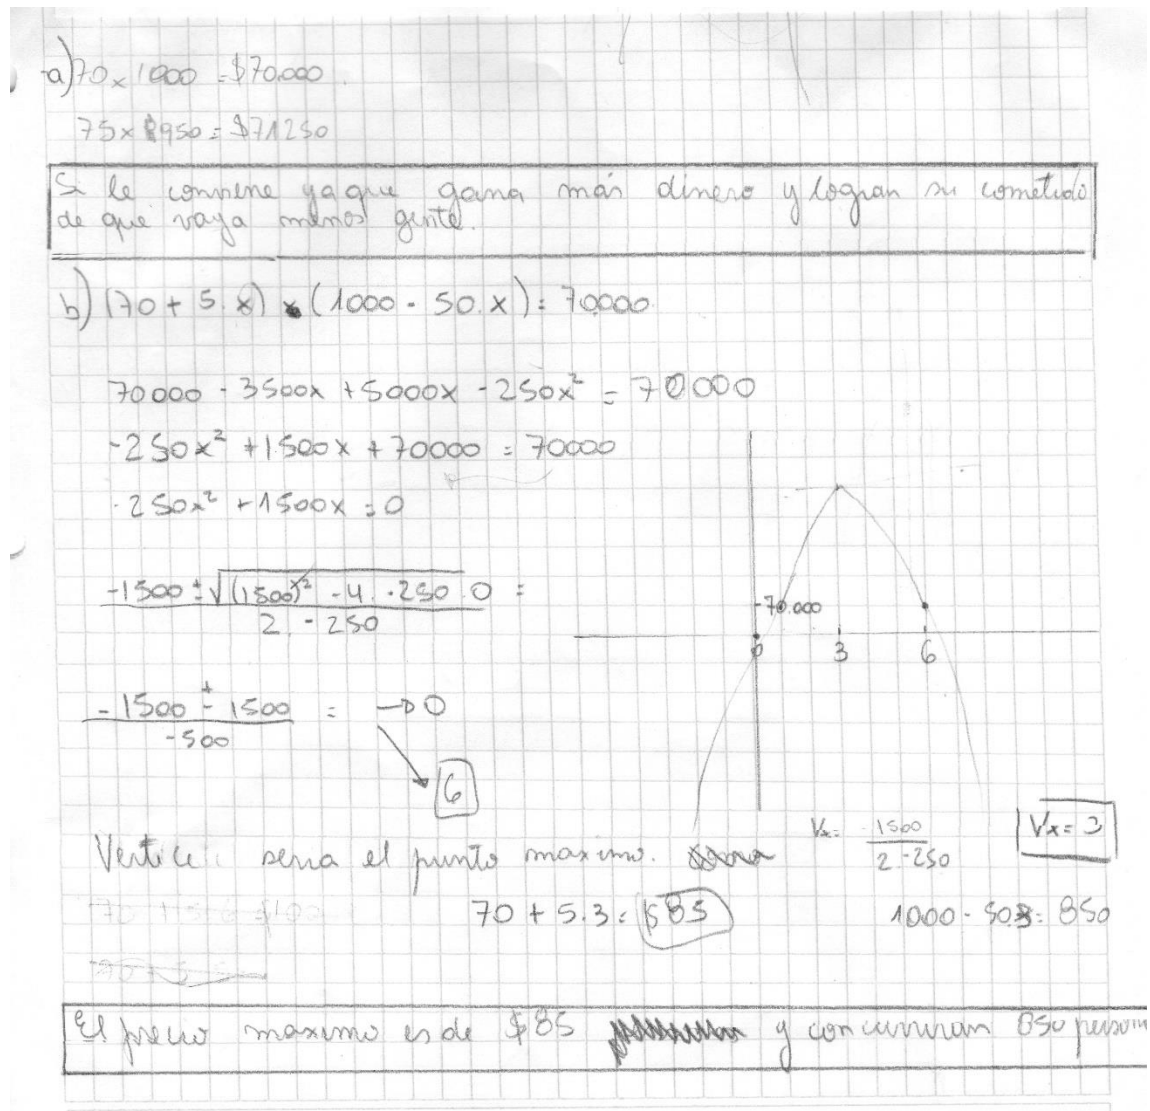 a) 70 x 1000 = $70.000
75 x 950 = $71250
Si le conviene ya que gana más dinero y logran su cometido
de que vaya menos gente.
b) (70 + 5.x) . (1000 - 50.x) = 70000
70000 - 3500x + 5000x - 250x² = 70000
-250x² + 1500x + 70000 = 70000
-250x² + 1500x = 0
-1500 ± √(1500)² - 4. -250.0 =
2. -250
70.000
0 3 6
-1500 ± 1500 = → 0
-500
6
Vertice: seria el punto maximo.
Vx = -1500
2 -250
Vx = 3
70 + 5.3 = $85
1000 - 50.3 = 850
El precio maximo es de $85 y concurriran 850 person